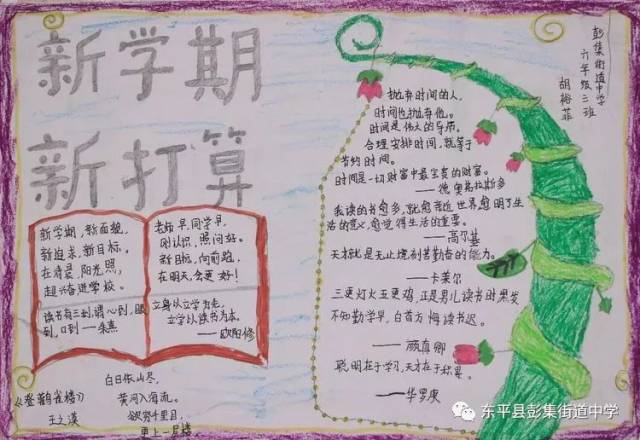 新学期
新打算
新学期，新面貌，
新追求，新目标，
在清晨，阳光照，
超兴奋进学校。
读书有三到，谓心到，眼
到，口到——朱熹
老师早，同学早，
刚认识，照问好。
新目标，向前超，
在明天，会更好！
立身以立学为先，
立学以读书为本。
——欧阳修
《登鹳雀楼》
王之涣
白日依山尽，
黄河入海流。
欲穷千里目，
更上一层楼
彭集街道中学
六年级三班
胡裕菲
抛弃时间的人，
时间也抛弃他。
时间是伟大的导师。
合理安排时间，就等于
节约时间。
时间是一切财富中最宝贵的财富。
——德奥弗拉斯多
我读的书愈多，就愈亲近世界，愈明了生
活的意义，愈觉得生活的重要。
——高尔基
天才就是无止境刻苦勤奋的能力。
——卡莱尔
三更灯火五更鸡，正是男儿读书时黑发
不知勤学早，白首方悔读书迟。
——颜真卿
聪明在于学习，天才在于积累。
——华罗庚
东平县彭集街道中学